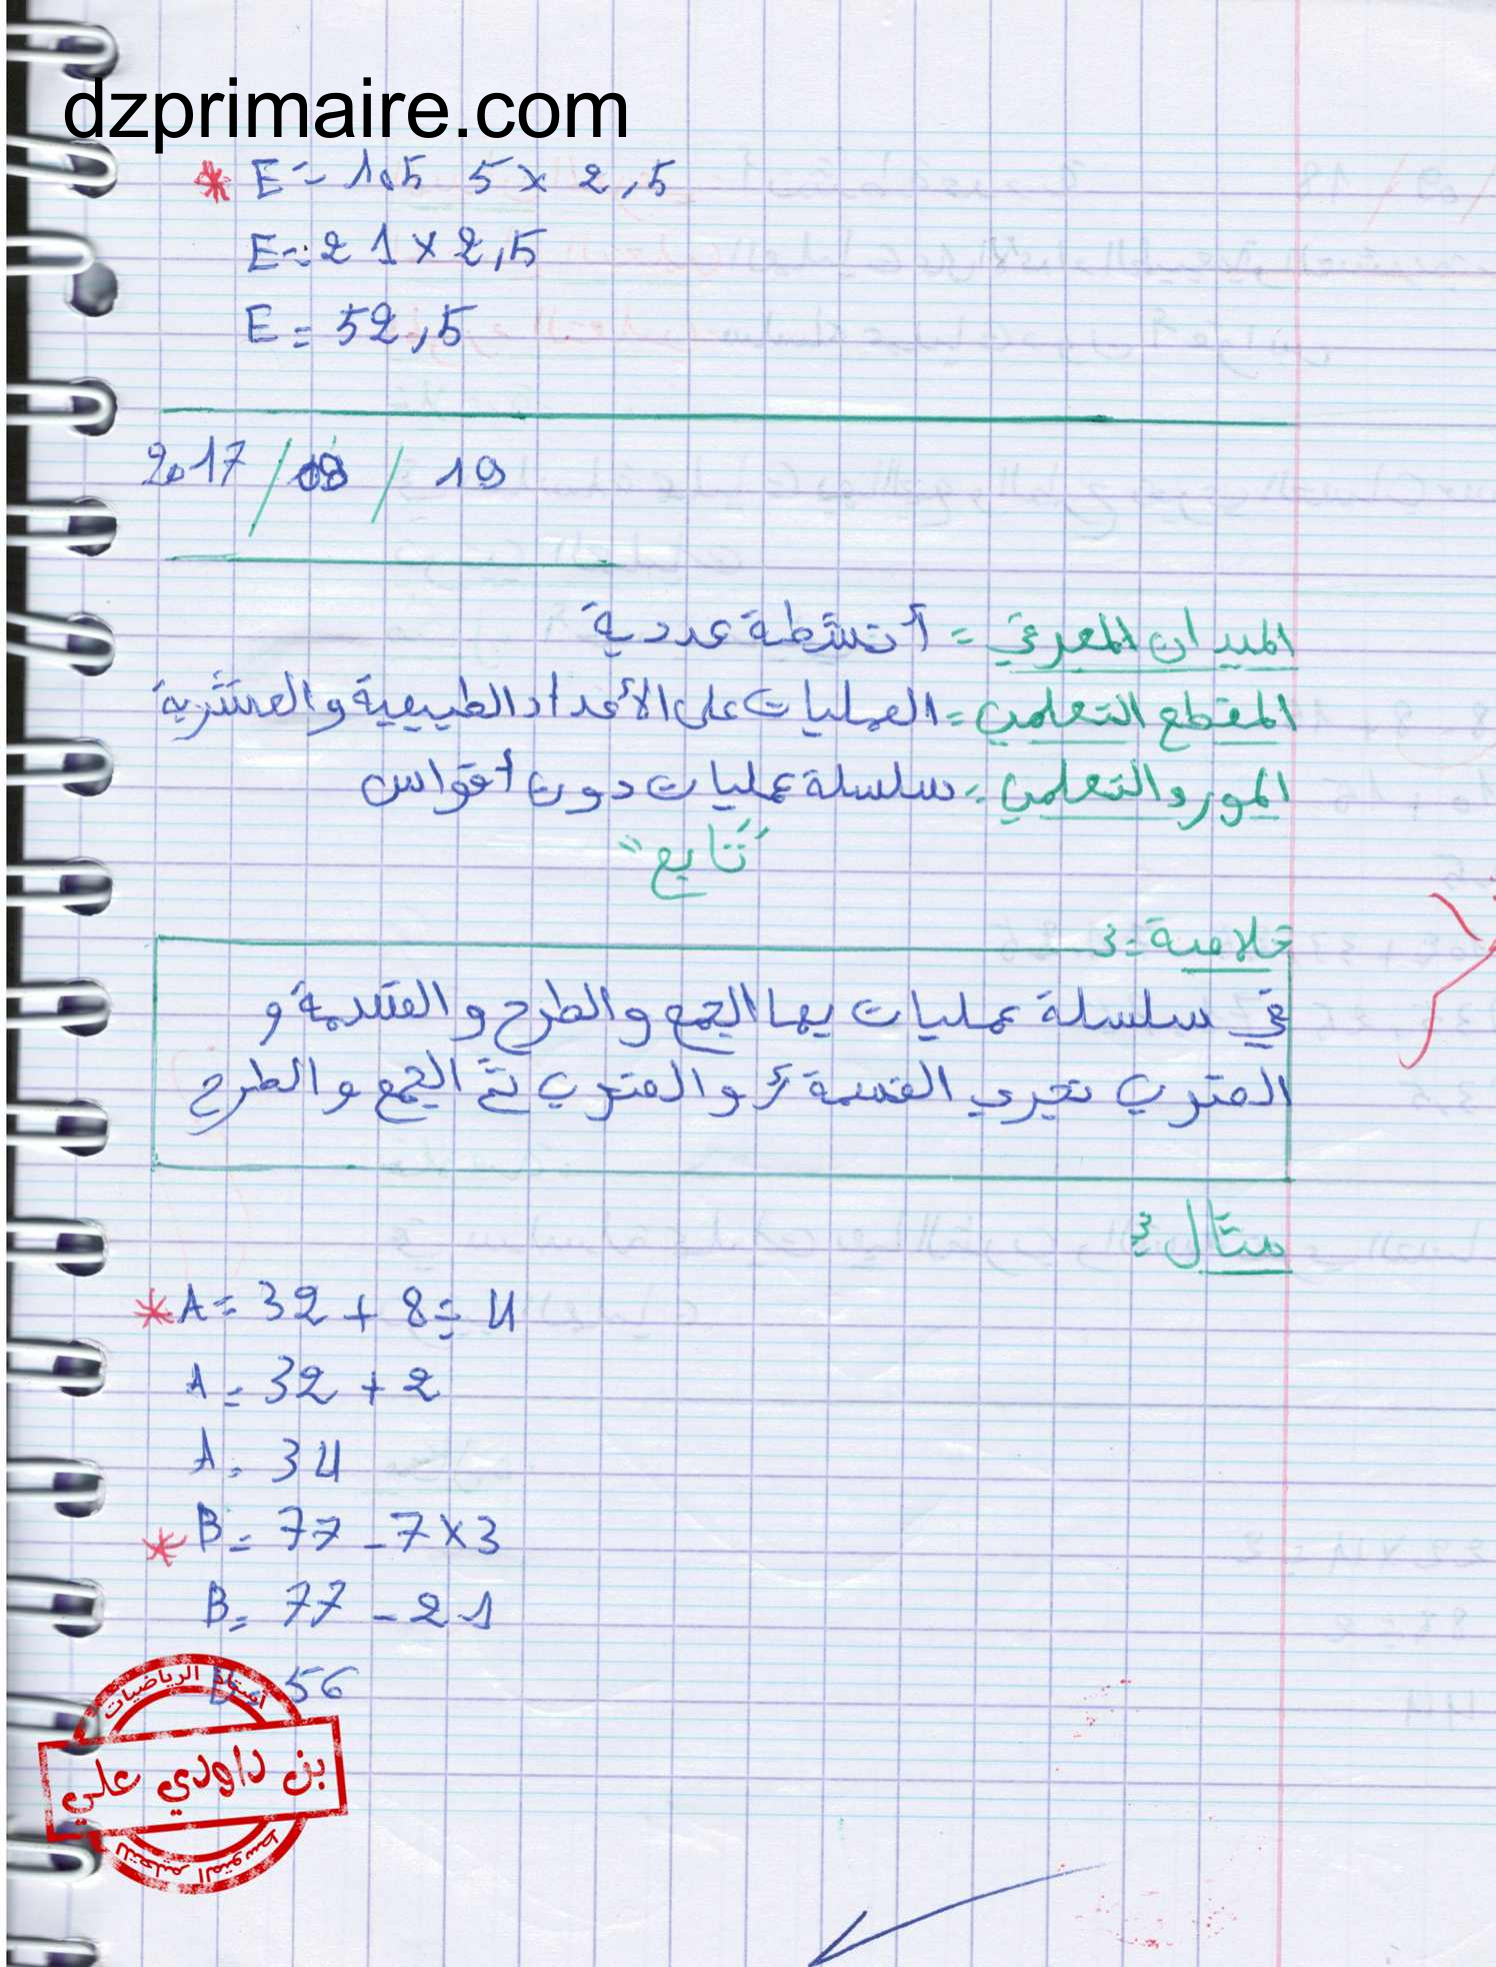 dzprimaire.com
* E = 105 ÷ 5 × 2,5
E = 21 × 2,5
E = 52,5
2017 / 09 / 19
الميدان المعرفي = أنشطة عددية
المقطع التعلمي = العمليات على الأعداد الطبيعية والعشرية
المورد التعلمي = سلسلة عمليات دون أقواس
"تابع"
خلاصة 3:
في سلسلة عمليات بها الجمع والطرح والقسمة و
الضرب نجري القسمة أو الضرب ثم الجمع والطرح
مثال 3:
* A = 32 + 8 ÷ 4
A = 32 + 2
A = 34
* B = 77 - 7 × 3
B = 77 - 21
B = 56
أستاذ الرياضيات
بن داودي علي
للتعليم المتوسط